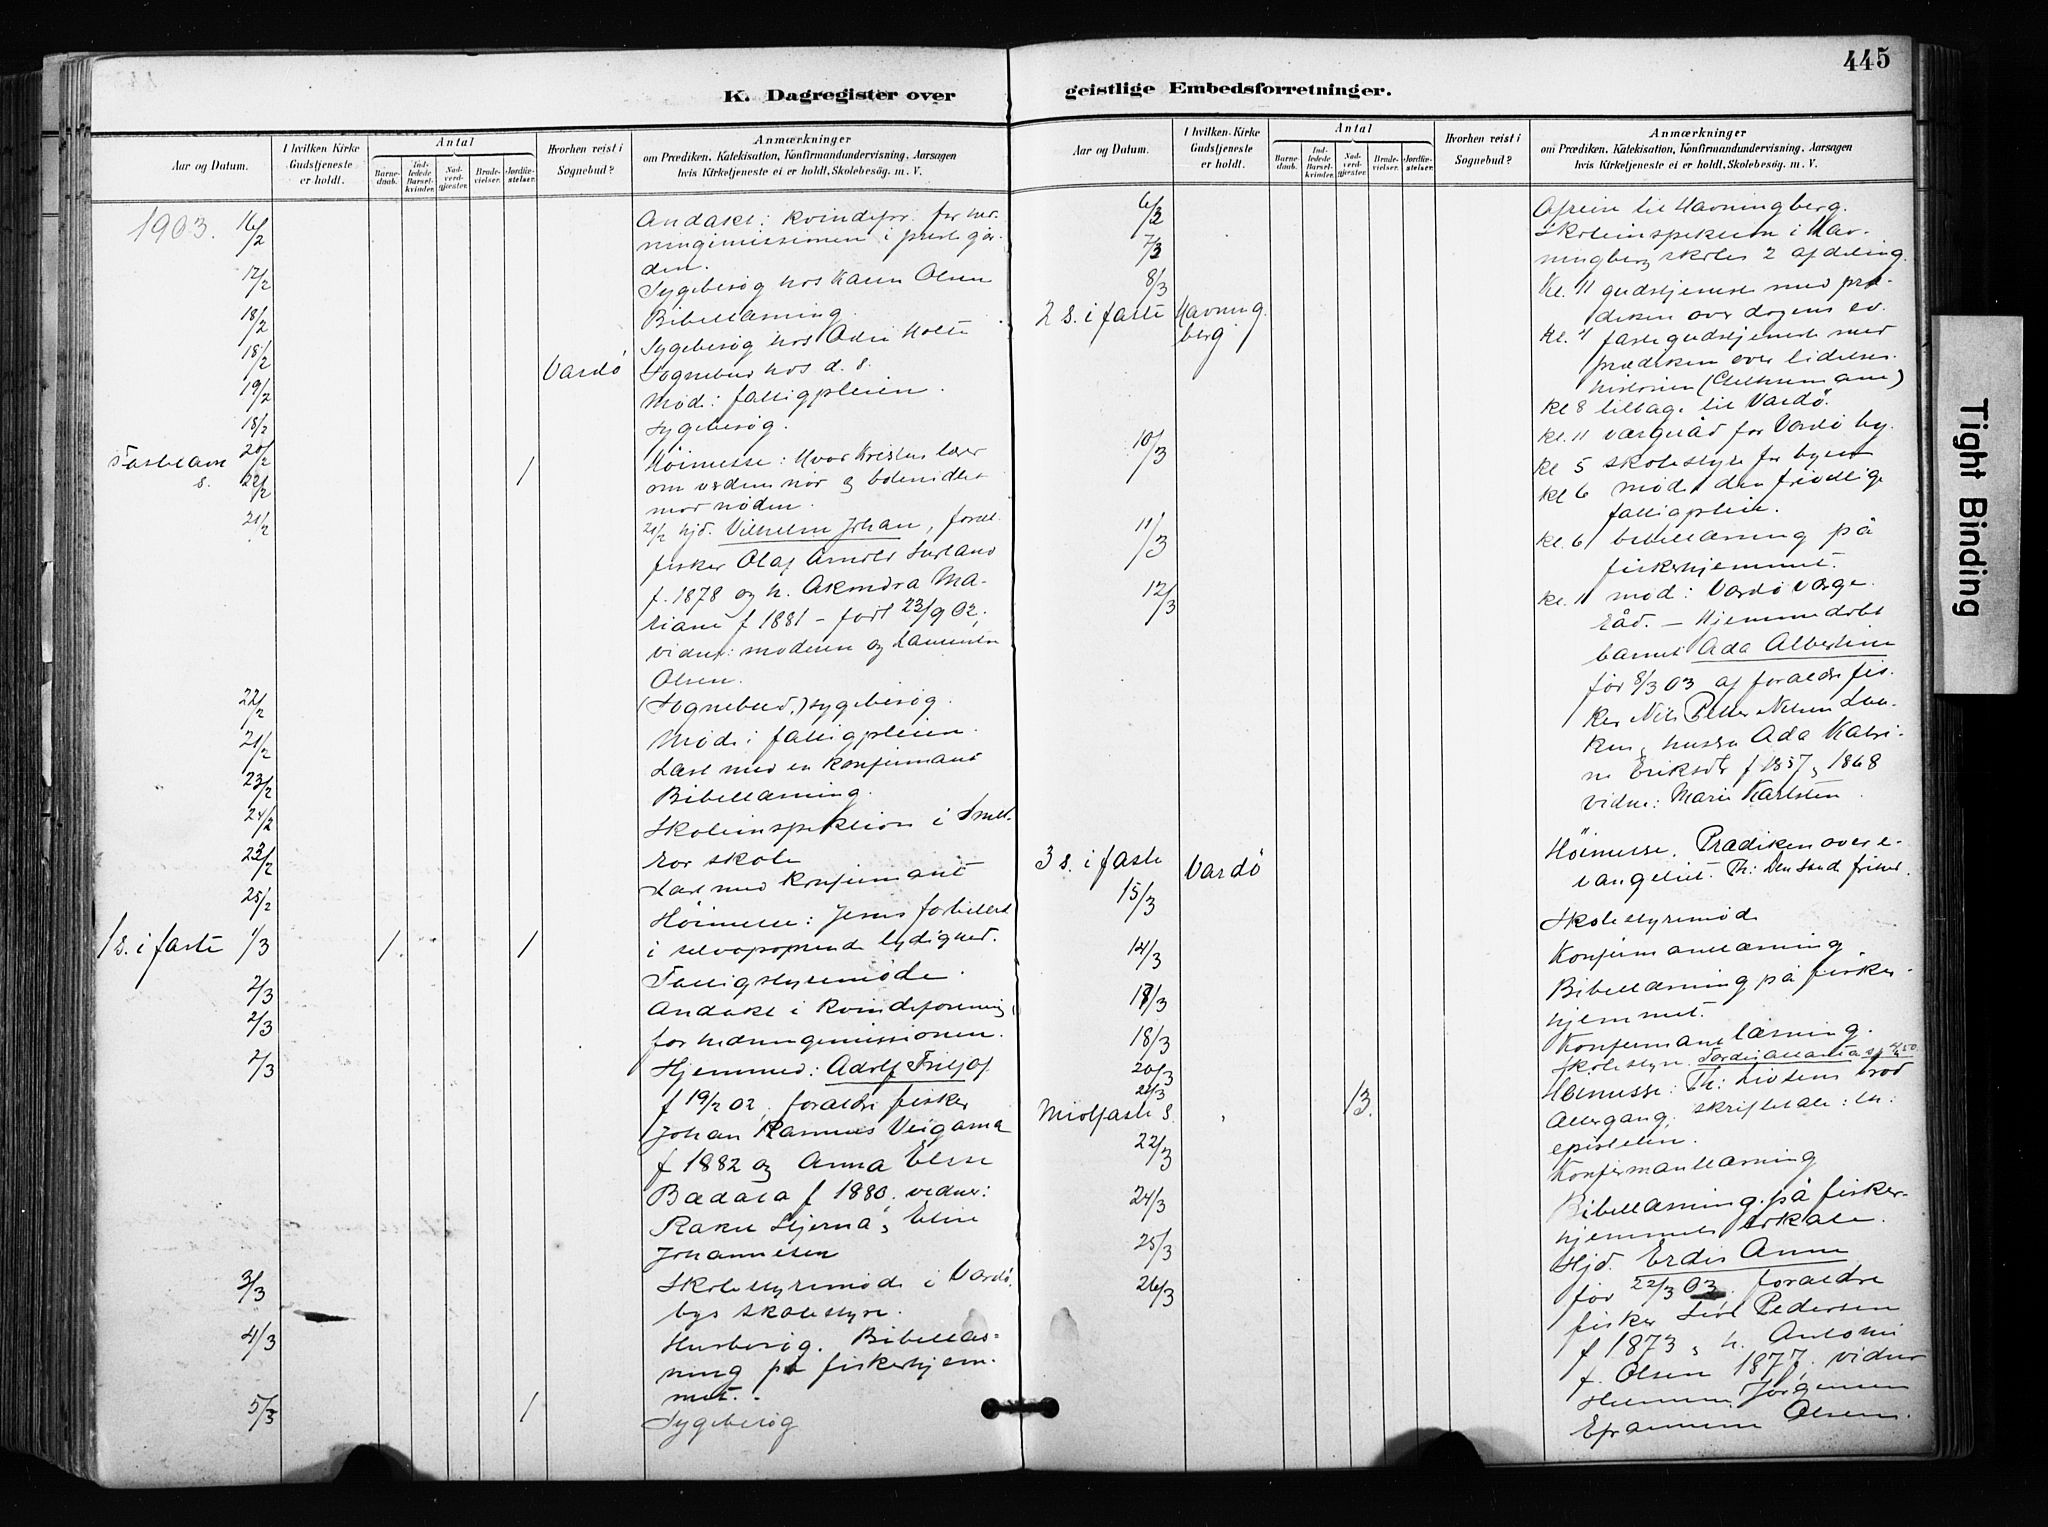 445
K. Dagregister over
geistlige Embedsforretninger.
Aar og Datum.
I hvilken Kirke
Gudstjeneste
er holdt.
Antal
Barne-
daab.
Ind-
ledede
Barsel-
kvinder.
Nad-
verd-
gjester.
Brude-
vielser.
Jordfæ-
stelser.
Hvorhen reist i
Sognebud?
Anmærkninger
om Prædiken, Katekisation, Konfirmandundervisning, Aarsagen
hvis Kirketjeneste ei er holdt, Skolebesøg. m. V.
1903. 16/2
Andakt i kvindefor. for hed-
ningemissionen i prestegår-
den.
17/2 Sygebesøg hos Karen Olsen
18/2 Bibellæsning.
18/2 Sygebesøg hos
19/2 Vardö Sognebud hos d. s.
18/2 Møde i fattigpleien.
20/2 Sygebesøg.
Fastelavn
s. 22/2 1 Høimesse: Hvad Kristus lærer
om verdens nød og botemidlet
mod nøden.
21/2 21/2 hjd. Vilhelm Johan, foræl.
fisker Olaf Arnold
f. 1878 og h. Ma-
riane f 1881 - født 23/9 02.
vidner: moderen og
Olsen.
22/2 (Sognebud,) sygebesøg.
21/2 Møde i fattigpleien.
23/2 Læst med en konfirmand
24/2 Bibellæsning.
23/2 Skoleinspektion i
ror skole
25/2 Læst med konfirmand
1 s. i faste 1/3 1. 1 Høimesse: Jesus forbilled
i selvopofrende lydighed.
2/3 Fattigstyremøde.
2/3 Andakt i kvindeforening
for hedningemissionen.
2/3 Hjemmed: Adolf Fritjof
f 19/2 02. forældre fisker
Johan Rasmus
f 1882 og Anna Elise
f 1880. vidner:
Elise
Johannesen
3/3 Skolestyremøde i Vardö
bys skolestyre.
4/3 Husbesøg. Bibellæs-
ning på fiskerhjem-
met.
5/3 1 Sygebesøg
Aar og Datum.
I hvilken Kirke
Gudstjeneste
er holdt.
Antal
Barne-
daab.
Ind-
ledede
Barsel-
kvinder.
Nad-
verd-
gjester.
Brude-
vielser.
Jordfæ-
stelser.
Hvorhen reist i
Sognebud?
Anmærkninger
om Prædiken, Katekisation, Konfirmandundervisning, Aarsagen
hvis Kirketjeneste ei er holdt, Skolebesøg. m. V.
6/3 Afreise til Havningberg.
7/3 Skoleinspektion i Hav-
ningberg skoles 2 afdeling.
8/3 Kl. 11 gudstjeneste med præ-
2 s. i faste Havning
berg
diken over dagens ev.
Kl. 4 fastegudstjeneste med
prædiken over lidelses-
historien
kl 8 tilbage til Vardö.
10/3 Kl. 11 vergeråd for Vardö by.
kl 5 skolestyre for byen
kl 6 møde i den frivillige
fattigpleie.
11/3 kl. 6 bibellæsning på
fiskerhjemmet.
12/3 kl. 11 møde i Vardö verge-
råd. - Hjemmedøbt
barnet Ada Albertine
för 8/3 03 af forældre fis-
ker Nils Petter Nilsen
hustru Ada Katri-
ne f 1857 1868
vidne: Marie Karlsten.
3 s. i faste Vardö Höimesse. Prædiken over e-
15/3 vangeliet. Th:
Skolestyremöde
14/3 Konfirmantlæsning
17/3 Bibellæsning på fisker-
hjemmet.
18/3 Konfirmantlæsning.
20/3 Skolestyre.
Midfaste s. 13. Høimesse: Th: Livsens brød
22/3 Altergang; skriftetale:
epistelen.
24/3 Konfirmantlæsning
25/3 Bibellæsning på fisker-
hjemmets lokale.
26/3 Hjd. Anne
för 22/3 03 forældre
fisker Pedersen
f 1873 h.
f. Olsen 1877. vidner
Jørgensen
Olsen.
Tight Binding